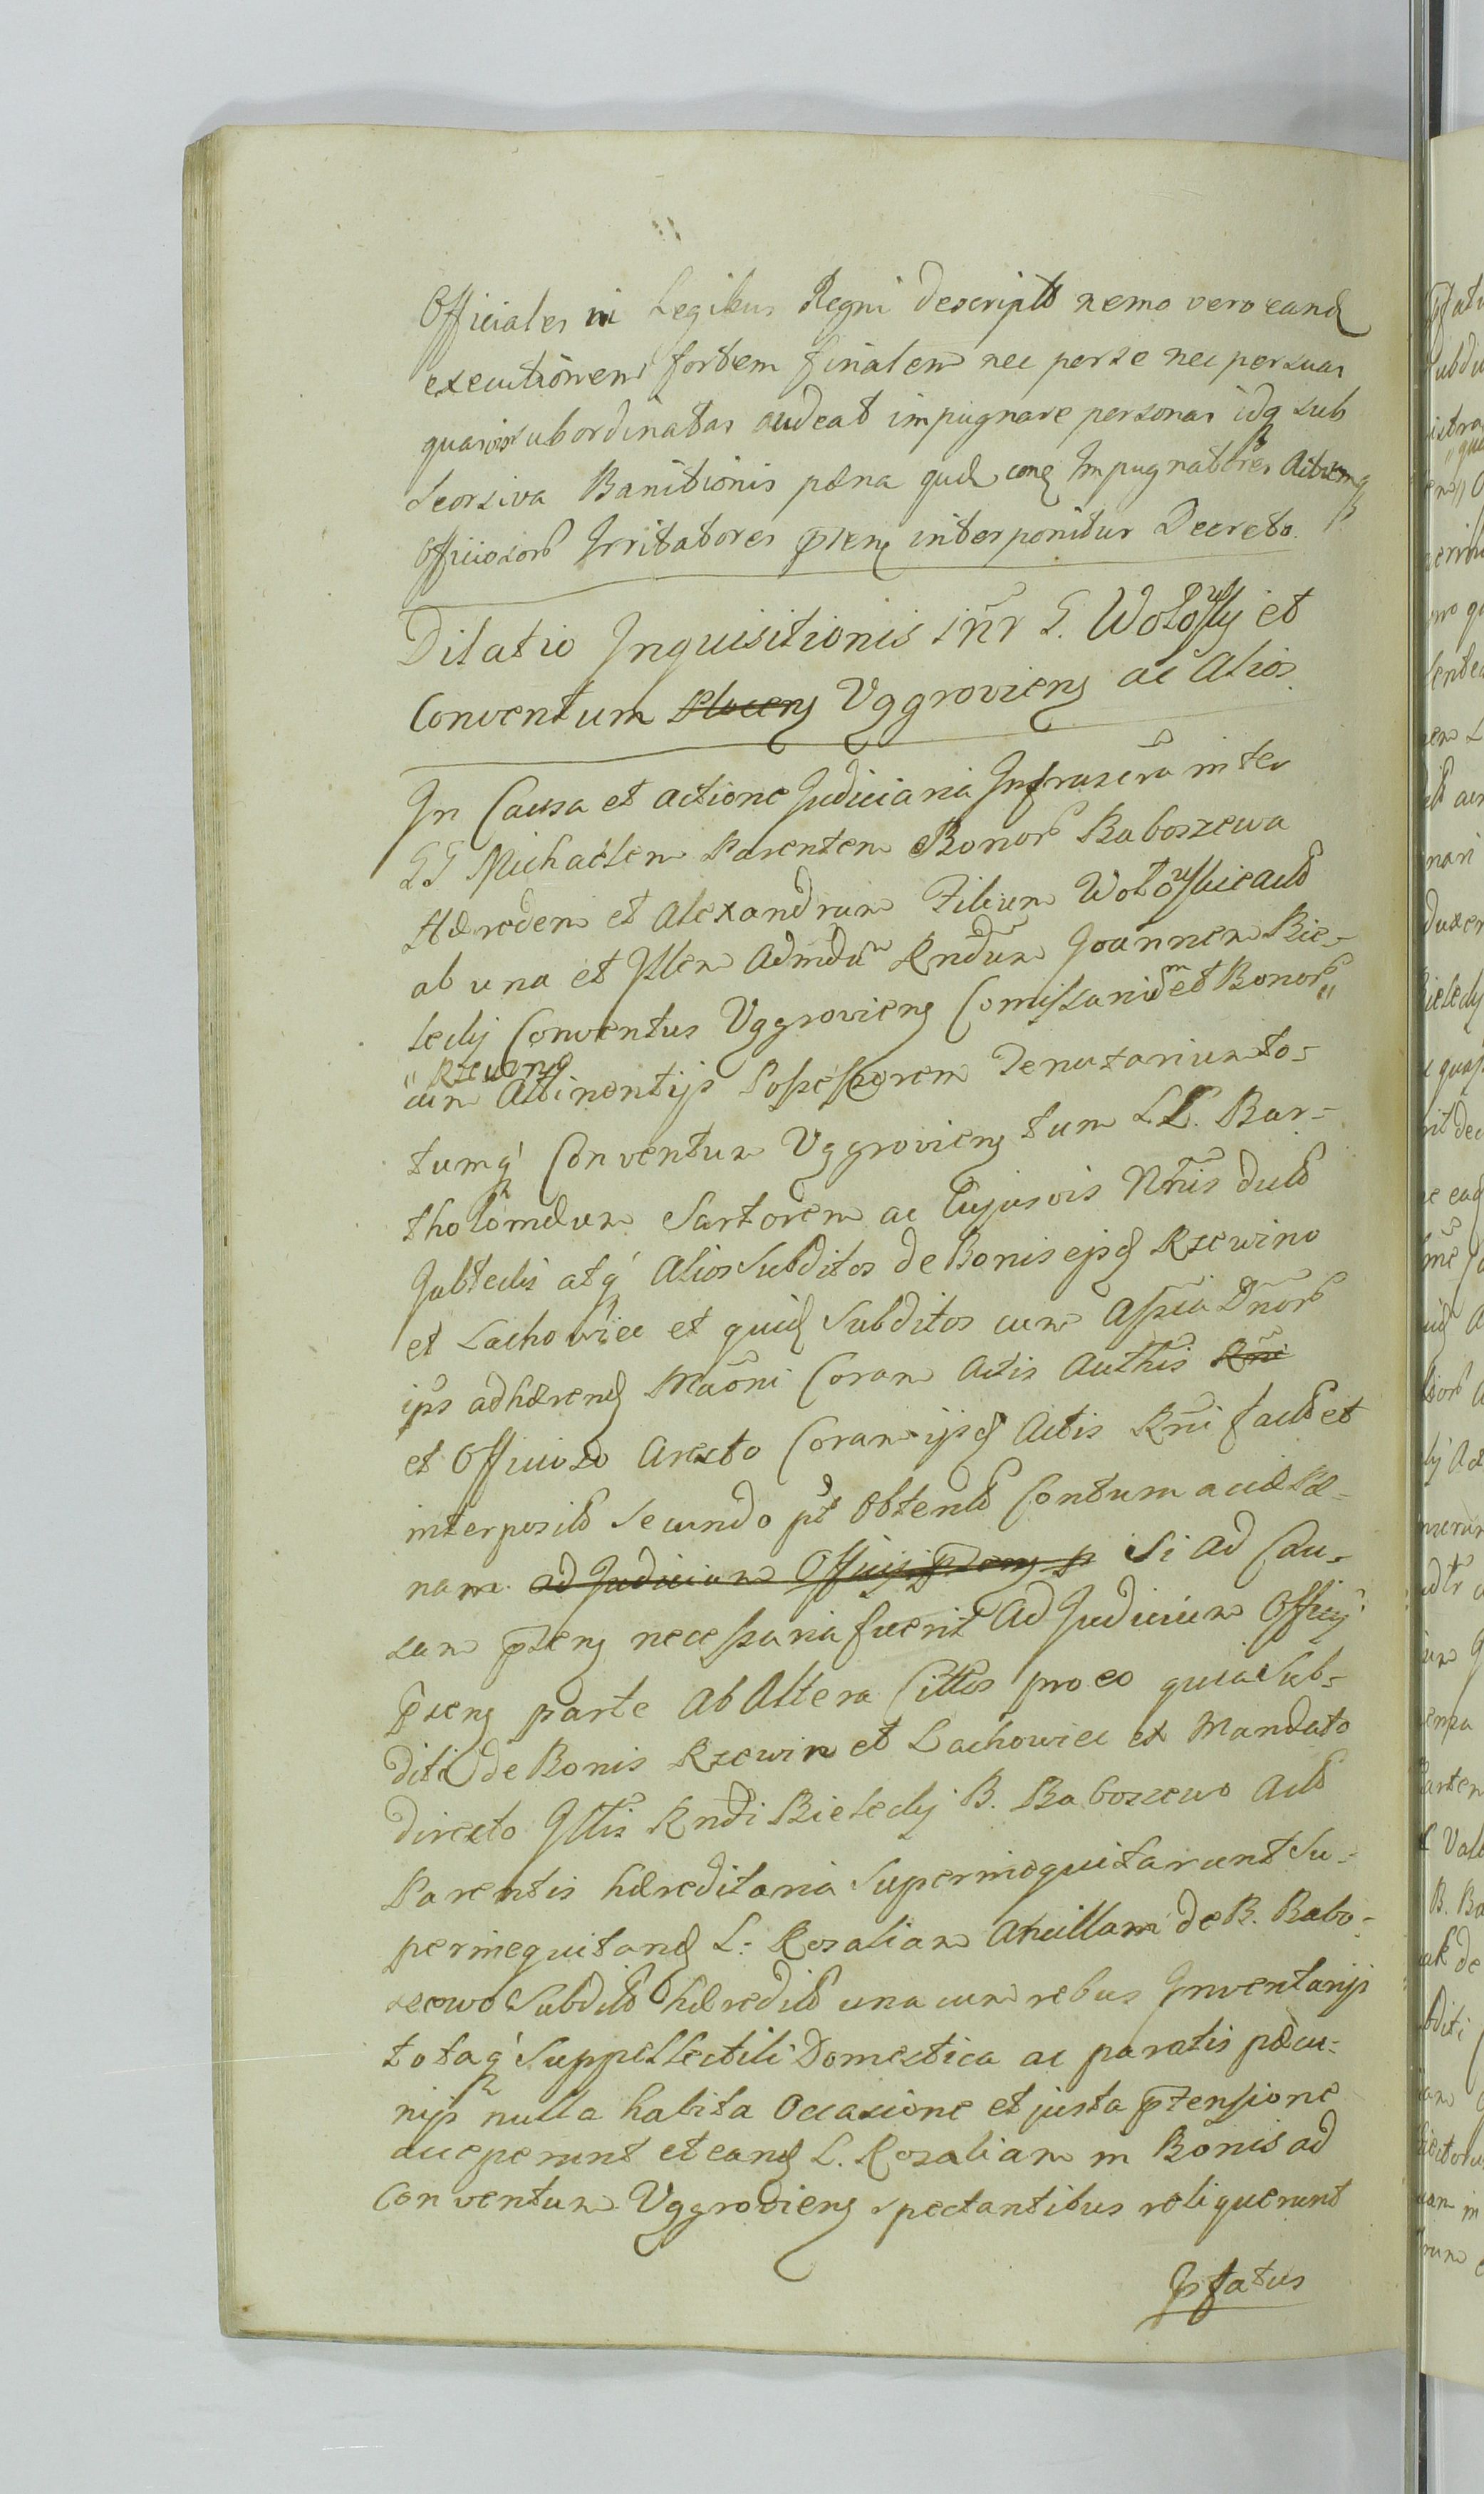 Officiales in Legibus Regni descripto nemo vero eand
executionem fortem finalem nec per se nec per suas
quasvis subordinatas audeat impugnare personas idq sub
seorsiva Banitionis pæna quæ conq Impugnatores Actuumq
Officiosorb Irritatores pnten interponitur Decreto.
Dilatio Inquisitionis inr G. Wołowsky et
Conventum Plocens Vggroviens ac Alios
In Causa et actione Judiciaria Infrascra inter
GG Michaelem Parentem Bonorb Baboszewa
Hæredem et Alexandrum Filium Wołowskie actb
ab una et Illem Admdū Rndum Joannem Bie-
lecky Conventus Vggroviens Comissariū et Bonorb
" Rzewino
cum Attinentijs Possessorem Tenutarium to-
tumq Conventum Vggroviens tum LL. Bar-
tholomæum Sartorem ac Cujusvis Nris dulb
Jabtecki atq Alios Subditos de Bonis ejsd Rzewino
et Lachowiec et quid Subditos cum Assia Dnorb
ips adhærend Mãoni Coram Actis Authis Rni
et Officioso Aresto Coram ijsd Actis Rni factb et
interposito Secundo pt obtento Contumaciæ Pæ-
nam. ad Judicium Officij pntens p Si ad Cau-
sam pntens necessaria fuerit Ad Judicium Officij
Pntens parte Ab Altera Cittos pro eo quia Sub-
diti de Bonis Rzewin et Lachowiec ex Mandato
directo Illis Rndi Bielecky B. Baboszewo Actb
Parentis hæreditaria Superinequitarunt Su-
perinequitand L. Rosaliam Ancillam de B. Babo-
szewo Subditb hæreditb una cum rebus Inventarijs
totaq Suppellectili Domestica ac paratis pæcu-
nijs nulla habita Occasione et justa prtensione
acceperunt et eand L. Rosaliam in Bonis ad
Conventum Vggroviens spectantibus reliquerunt
Pfatus